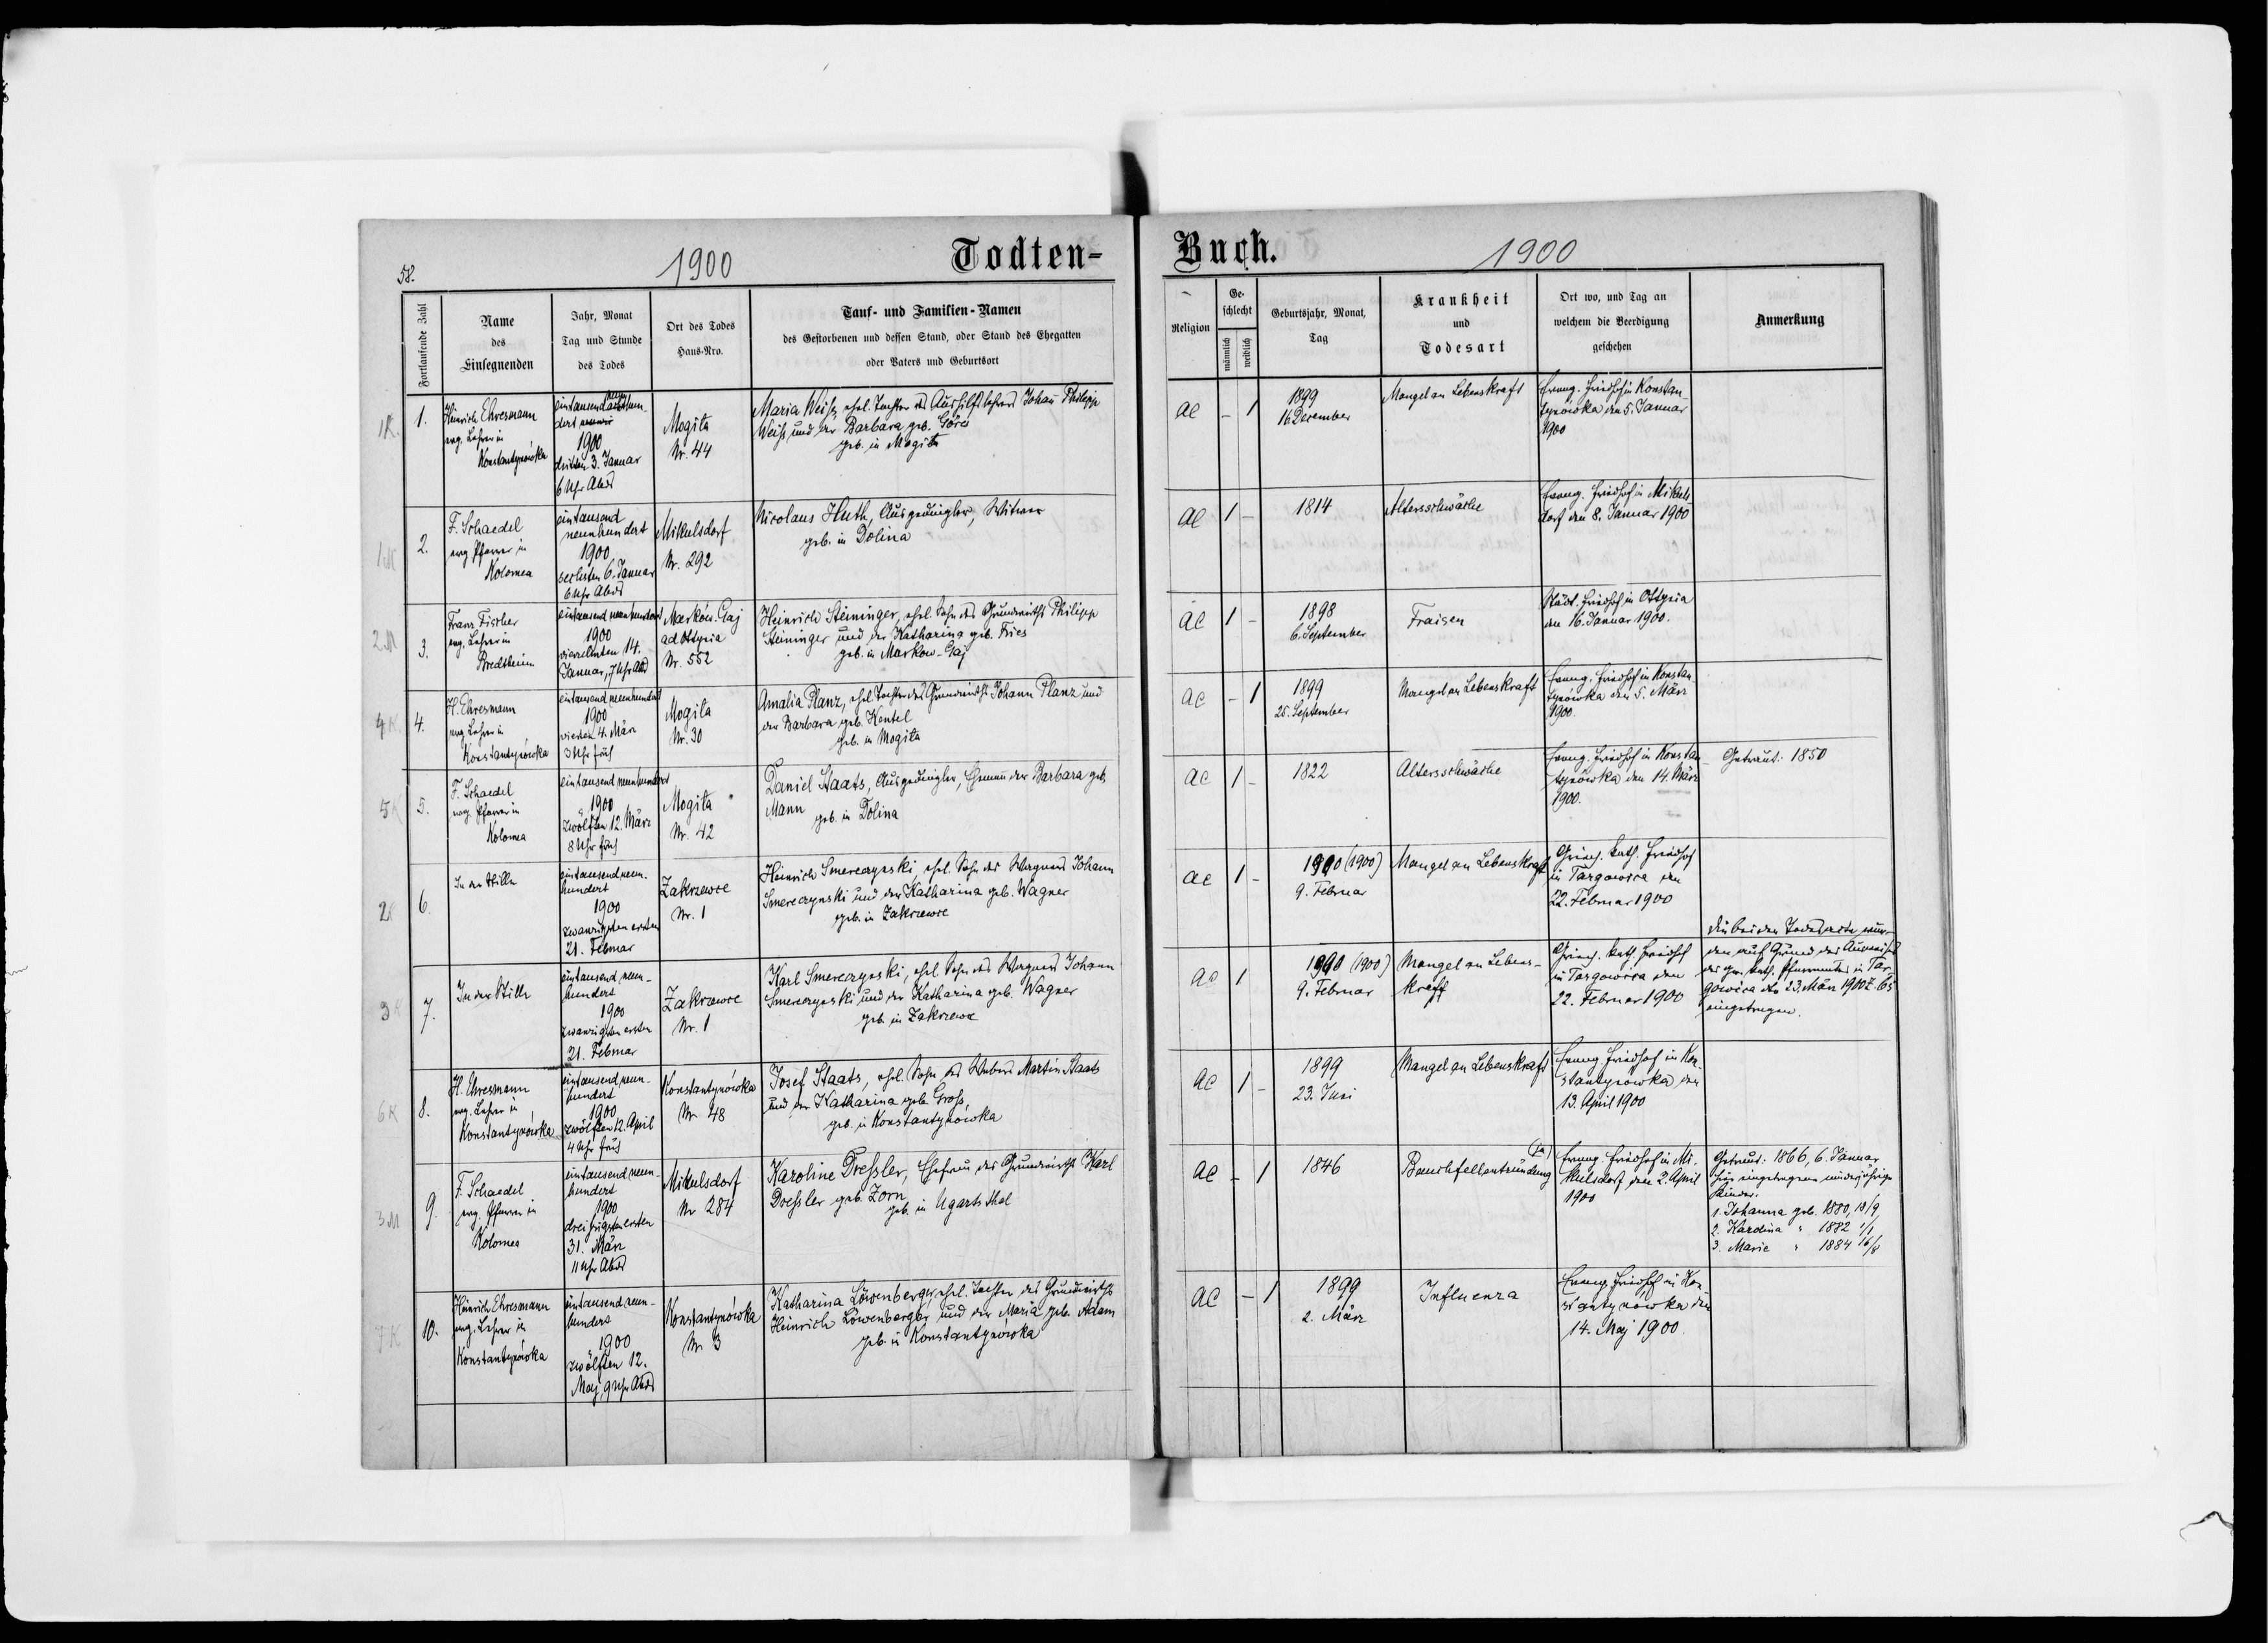 58.
1900
Todten-
Fortlaufende Zahl
Name
des
Einsegnenden
Jahr, Monat
Tag und Stunde
des Todes
Ort des Todes
Haus-Nro.
Tauf- und Familien-Namen
des Gestorbenen und dessen Stand, oder Stand des Ehegatten
oder Vaters und Geburtsort
1K.
1.
Heinrich Ehresmann
evg. Lehrer in
Konstantynówka
eintausend neunhun-
dert
1900
dritten 3. Januar
6 Uhr Abds
Mogiła
Nr. 44
Maria Weiß, ehel. Tochter des Aushilfslehrers Johann Philipp
Weiß und der Barbara geb. Göres
geb. in Mogiła
1M
2.
F. Schaedel
evg. Pfarrer in
Kolomea
eintausend
neunhundert
1900
sechsten 6. Januar
6 Uhr Abds
Mikulsdorf
Nr. 292
Nicolaus Huth, Ausgedingler, Witwer
geb. in Dolina
2M
3.
Franz Fischer
evg. Lehrer in
Bredtheim
eintausend neunhundert
1900
vierzehnten 14.
Januar, 7 Uhr Abds
Markow. Gaj
ad Ottynia
Nr. 552
Heinrich Steininger, ehel. Sohn des Grundwirths Philipp
Steininger und der Katharina geb. Fries
geb. in Markow-Gaj
4K
4.
H. Ehresmann
evg. Lehrer in
Konstantynówka
eintausend neunhundert
1900
vierten 4. März
3 Uhr früh
Mogiła
Nr. 30
Amalia Planz, ehel. Tochter des Grundwirths Johann Planz und
der Barbara geb. Kentel
geb. in Mogiła
5K
5.
F. Schaedel
evg. Pfarrer in
Kolomea
eintausend neunhundert
1900
zwölften 12. März
8 Uhr früh
Mogiła
Nr. 42
Daniel Staats, Ausgedingler, Ehemann der Barbara geb.
Mann
geb. in Dolina
2K
6.
In der Stille
eintausend neun-
hundert
1900
zwanzigsten ersten
21. Februar
Zakrzewce
Nr. 1
Heinrich Smereczynski, ehel. Sohn des Wagners Johann
Smereczynski und der Katharina geb. Wagner
geb. in Zakrzewce
3K
7.
In der Stille
eintausend neun-
hundert
1900
zwanzigsten ersten
21. Februar
Zakrzewce
Nr. 1
Karl Smereczynski, ehel. Sohn des Wagners Johann
Smereczynski und der Katharina geb. Wagner
geb. in Zakrzewce
6K
8.
H. Ehresmann
evg. Lehrer in
Konstantynówka
eintausend neun-
hundert
1900
zwölften 12. April
4 Uhr früh
Konstantynówka
Nr 48
Josef Staats, ehel. Sohn des Webers Martin Staats
und der Katharina geb. Groß,
geb. in Konstantynówka
3M
9.
F. Schaedel
evg. Pfarrer in
Kolomea
eintausend neun-
hundert
1900
dreißigsten ersten
31. März
11 Uhr Abds
Mikulsdorf
Nr 284
Karoline Dreßler, Ehefrau des Grundwirths Karl
Dreßler geb. Zorn,
geb. in Ugartsthal
7K
10.
Heinrich Ehresmann
evg. Lehrer in
Konstantynówka
eintausend neun-
hundert
1900
zwölften 12.
Maj, 9 Uhr Abds
Konstantynówka
Nr 3
Katharina Löwenberger, ehel. Tochter des Grundwirths
Heinrich Löwenberger und der Maria geb. Adam
geb. in Konstantynówka
Buch.
1900
Religion
Ge-
schlecht
männlich
weiblich
Geburtsjahr, Monat,
Tag
Krankheit
und
Todesart
Ort wo, und Tag an
welchem die Beerdigung
geschehen
Anmerkung
ac
- 1
1899
16. Dezember
Mangel an Lebenskraft
Evang. Friedhof in Konstan-
tynówka den 5. Januar
1900
ac
1 -
1814
Altersschwäche
Evang. Friedhof in Mikuls-
dorf den 8. Januar 1900
ac
1 -
1898
6. September
Fraisen
Städt. Friedhof in Ottynia
den 16. Januar 1900.
ac
- 1
1899
25. September
Mangel an Lebenskraft
Evang. Friedhof in Konstan-
tynówka den 5. März
1900.
ac
1 -
1822
Altersschwäche
Evang. Friedhof in Konstan-
tynówka den 14. März
1900.
Getraut: 1850
ac
1 -
1900 (1900)
9. Februar
Mangel an Lebenskraft
Griech. kath. Friedhof
in Targowica den
22. Februar 1900
ac
1
1900 (1900)
9. Februar
Mangel an Lebens-
kraft
Griech. kath. Friedhof
in Targowica den
22. Februar 1900
Die beiden Todesacte wur-
den auf Grund des Ausweises
des gr. kath. Pfarramtes in Tar-
gowica dto 23. März 1900 Z. 65
eingetragen.
ac
1 -
1899
23. Juni
Mangel an Lebenskraft
Evang. Friedhof in Kon-
stantynówka den
13. April 1900
ac
- 1
1846
Bauchfellentzündung
Evang. Friedhof in Mi-
kulsdorf den 2. April
1900
Getraut: 1866, 6. Januar
hier eingetragene minderjährige
Kinder:
1. Johanna geb. 1880, 18/9
2. Karolina " 1882 1/1
3. Marie " 1884 16/8
ac
- 1
1899
2. März
Influenza
Evang. Friedhof in Kon-
stantynówka den
14. Maj 1900.